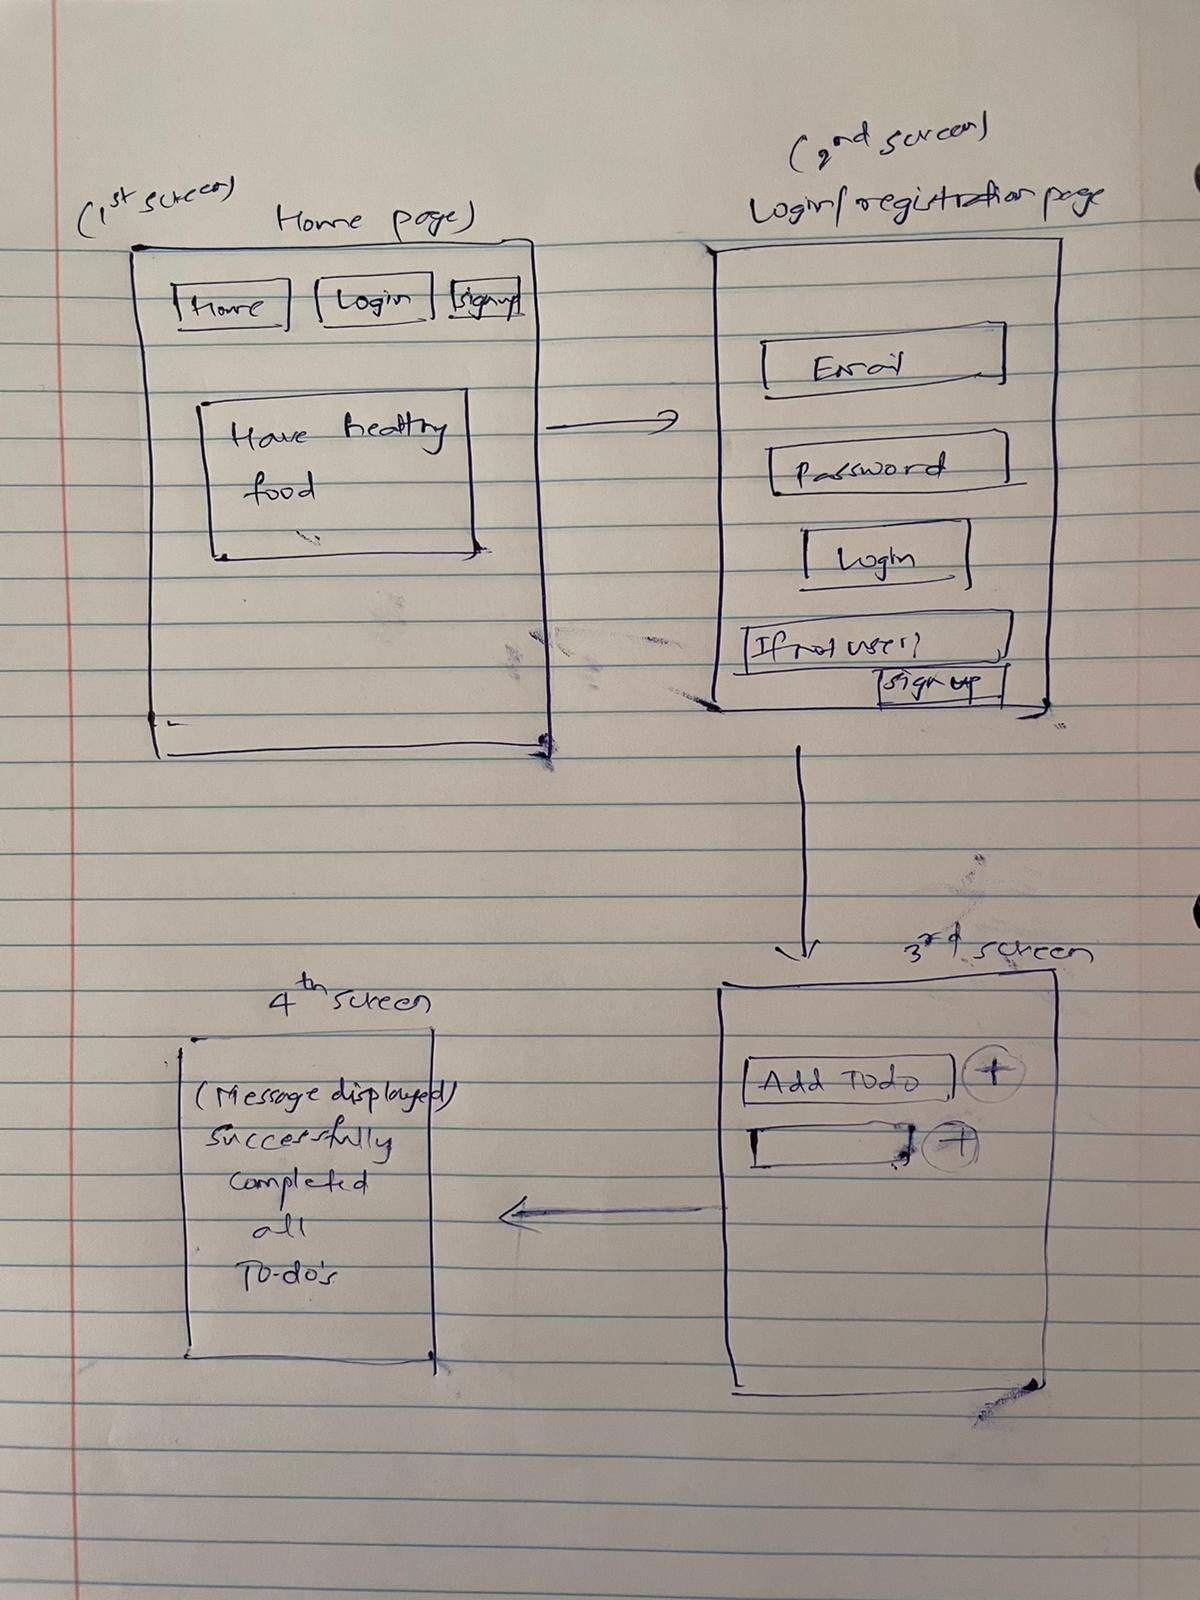 (1st screen)
Home page)
Home
Login
Signup
Have healthy
food
(2nd screen)
Login/registration page
Email
Password
Login
If not user?
Sign up
3rd screen
Add Todo +
+
4th screen
(Message displayed)
Successfully
completed
all
To-do's